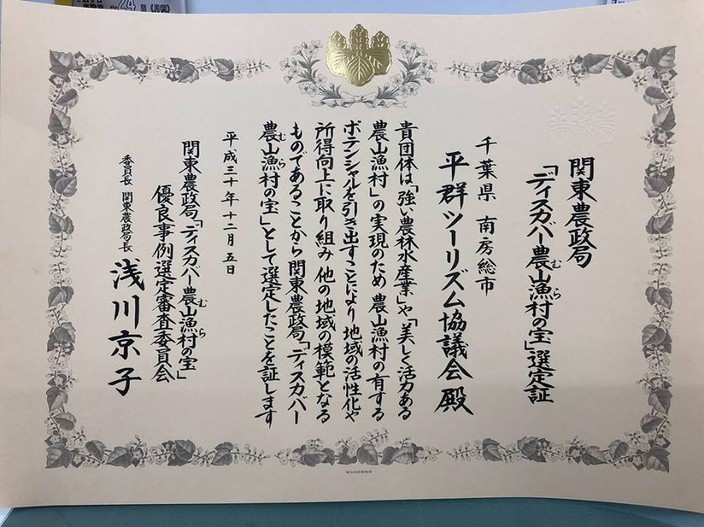 関東農政局
「ディスカバー農山漁村の宝」選定証
むら
千葉県 南房総市
平群ツーリズム協議会 殿
貴団体は「強い農林水産業」や「美しく活力ある
農山漁村」の実現のため 農山漁村の有する
ポテンシャルを引き出すことにより 地域の活性化や
所得向上に取り組み 他の地域の模範となる
ものであることから関東農政局「ディスカバー
農山漁村の宝」として選定したことを証します
むら
平成三十年十二月五日
関東農政局「ディスカバー農山漁村の宝」
むら
優良事例選定審査委員会
委員長 関東農政局長 浅川京子